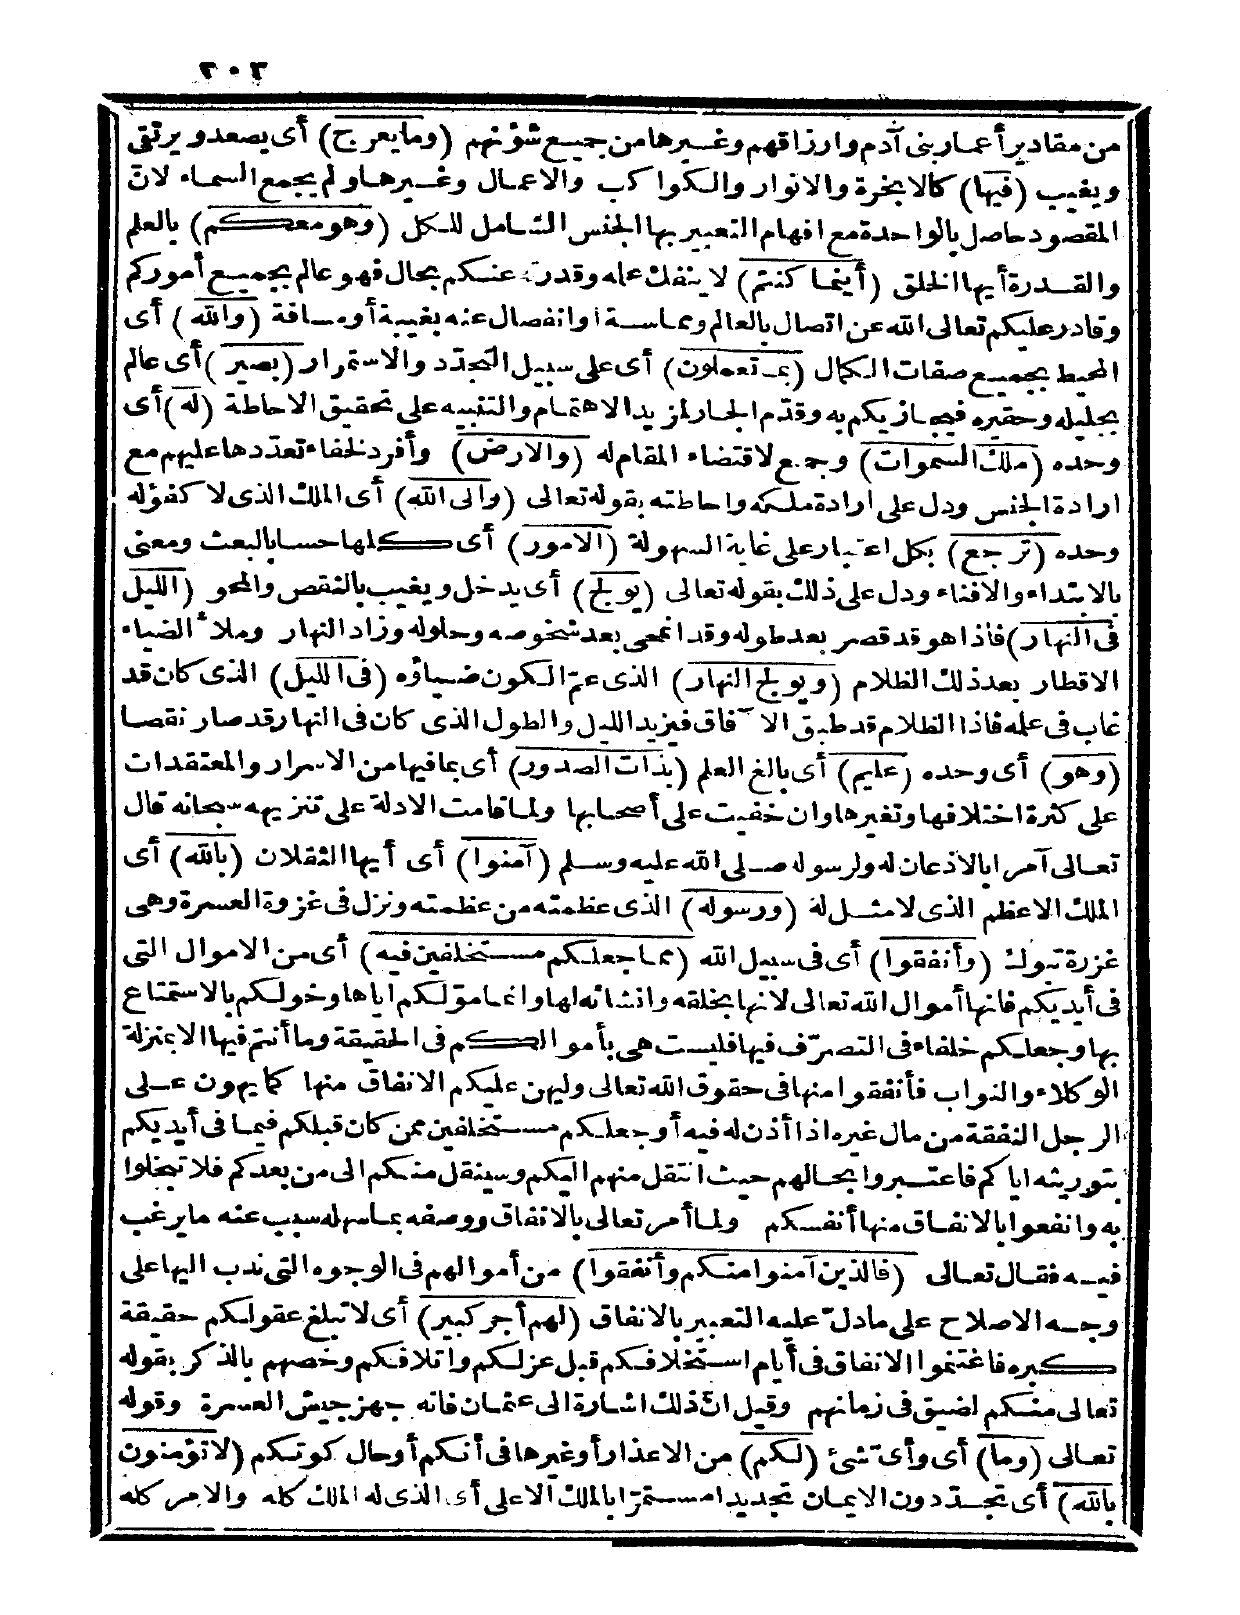 ٢٠٣
من مقادير أعمار بنى آدم وارزاقهم وغيرها من جميع شؤنهم (وما يعرج) أى يصعد ويرتقى
ويغيب (فيها) كالابخرة والانوار والكواكب والاعمال وغيرها ولم يجمع السماء لانّ
المقصود حاصل بالواحدة مع افهام التعبير بها الجنس الشامل للكل (وهو معكم) بالعلم
والقدرة أيها الخلق (أينما كنتم) لا ينفك علمه وقدرته عنكم بحال فهو عالم بجميع أموركم
وقادر عليكم تعالى الله عن اتصال بالعالم ومماسة أو انفصال عنه بغيبة أو مسافة (والله) أى
المحيط بجميع صفات الكمال (بما تعملون) أى على سبيل التجدّد والاستمرار (بصير) أى عالم
بجليله وحقيره فيجازيكم به وقدّم الجار لمزيد الاهتمام والتنبيه على تحقيق الاحاطة (له) أى
وحده (ملك السموات) وجمع لاقتضاء المقام له (والارض) وأفرد لخفاء تعدّدها عليهم مع
ارادة الجنس ودل على ارادة ملكه واحاطته بقوله تعالى (والى الله) أى الملك الذى لا كفؤله
وحده (ترجع) بكل اعتبار على غاية السهولة (الامور) أى كلها حسا بالبعث ومعنى
بالابتداء والافناء ودل على ذلك بقوله تعالى (يولج) أى يدخل ويغيب بالنقص والمحو (الليل
فى النهار) فاذا هو قد قصر بعد طوله وقد انمحى بعد شخوصه وحلوله وزاد النهار وملأ الضياء
الاقطار بعد ذلك الظلام (ويولج النهار) الذى عمّ الكون ضياؤه (فى الليل) الذى كان قد
غاب فى علمه فاذا الظلام قد طبق الآفاق فيزيد الليل والطول الذى كان فى النهار قد صار نقصا
(وهو) أى وحده (عليم) أى بالغ العلم (بذات الصدور) أى بما فيها من الاسرار والمعتقدات
على كثرة اختلافها وتغيرها وان خفيت على أصحابها ولما قامت الادلة على تنزيهه سبحانه قال
تعالى آمرا بالاذعان له ولرسوله صلى الله عليه وسلم (آمنوا) أى أيها الثقلان (بالله) أى
الملك الاعظم الذى لا مثل له (ورسوله) الذى عظمته من عظمته ونزل فى غزوة العسرة وهى
غزوة تبوك (وأنفقوا) أى فى سبيل الله (مما جعلكم مستخلفين فيه) أى من الاموال التى
فى أيديكم فانها أموال الله تعالى لانها بخلقه وانشائه لها وانما موّلكم اياها وخولكم بالاستمتاع
بها وجعلكم خلفاء فى التصرّف فيها فليست هى بأموالكم فى الحقيقة وما أنتم فيها الا بمنزلة
الوكلاء والنواب فأنفقوا منها فى حقوق الله تعالى وليهن عليكم الانفاق منها كما يهون على
الرجل النفقة من مال غيره اذا أذن له فيه أو جعلكم مستخلفين ممن كان قبلكم فيما فى أيديكم
بتوريثه اياكم فاعتبروا بحالهم حيث انتقل منهم اليكم وسينقل منكم الى من بعدكم فلا تبخلوا
به وانفعوا بالانفاق منها أنفسكم ولما أمر تعالى بالانفاق ووصفه بما سهله سبب عنه ما يرغب
فيه فقال تعالى (فالذين آمنوا منكم وأنفقوا) من أموالهم فى الوجوه التى ندب اليها على
وجه الاصلاح على ما دلّ عليه التعبير بالانفاق (لهم أجر كبير) أى لا تبلغ عقولكم حقيقة
كبره فاغتنموا الانفاق فى أيام استخلافكم قبل عزلكم واتلافكم وخصهم بالذكر بقوله
تعالى منكم لضيق فى زمانهم وقيل انّ ذلك اشارة الى عثمان فانه جهز جيش العسرة وقوله
تعالى (وما) أى وأىّ شئ (لكم) من الاعذار أو غيرها فى أنكم أو حال كونكم (لا تؤمنون
بالله) أى تجدّدون الايمان تجديدا مستمرّا بالملك الاعلى أى الذى له الملك كله والامر كله